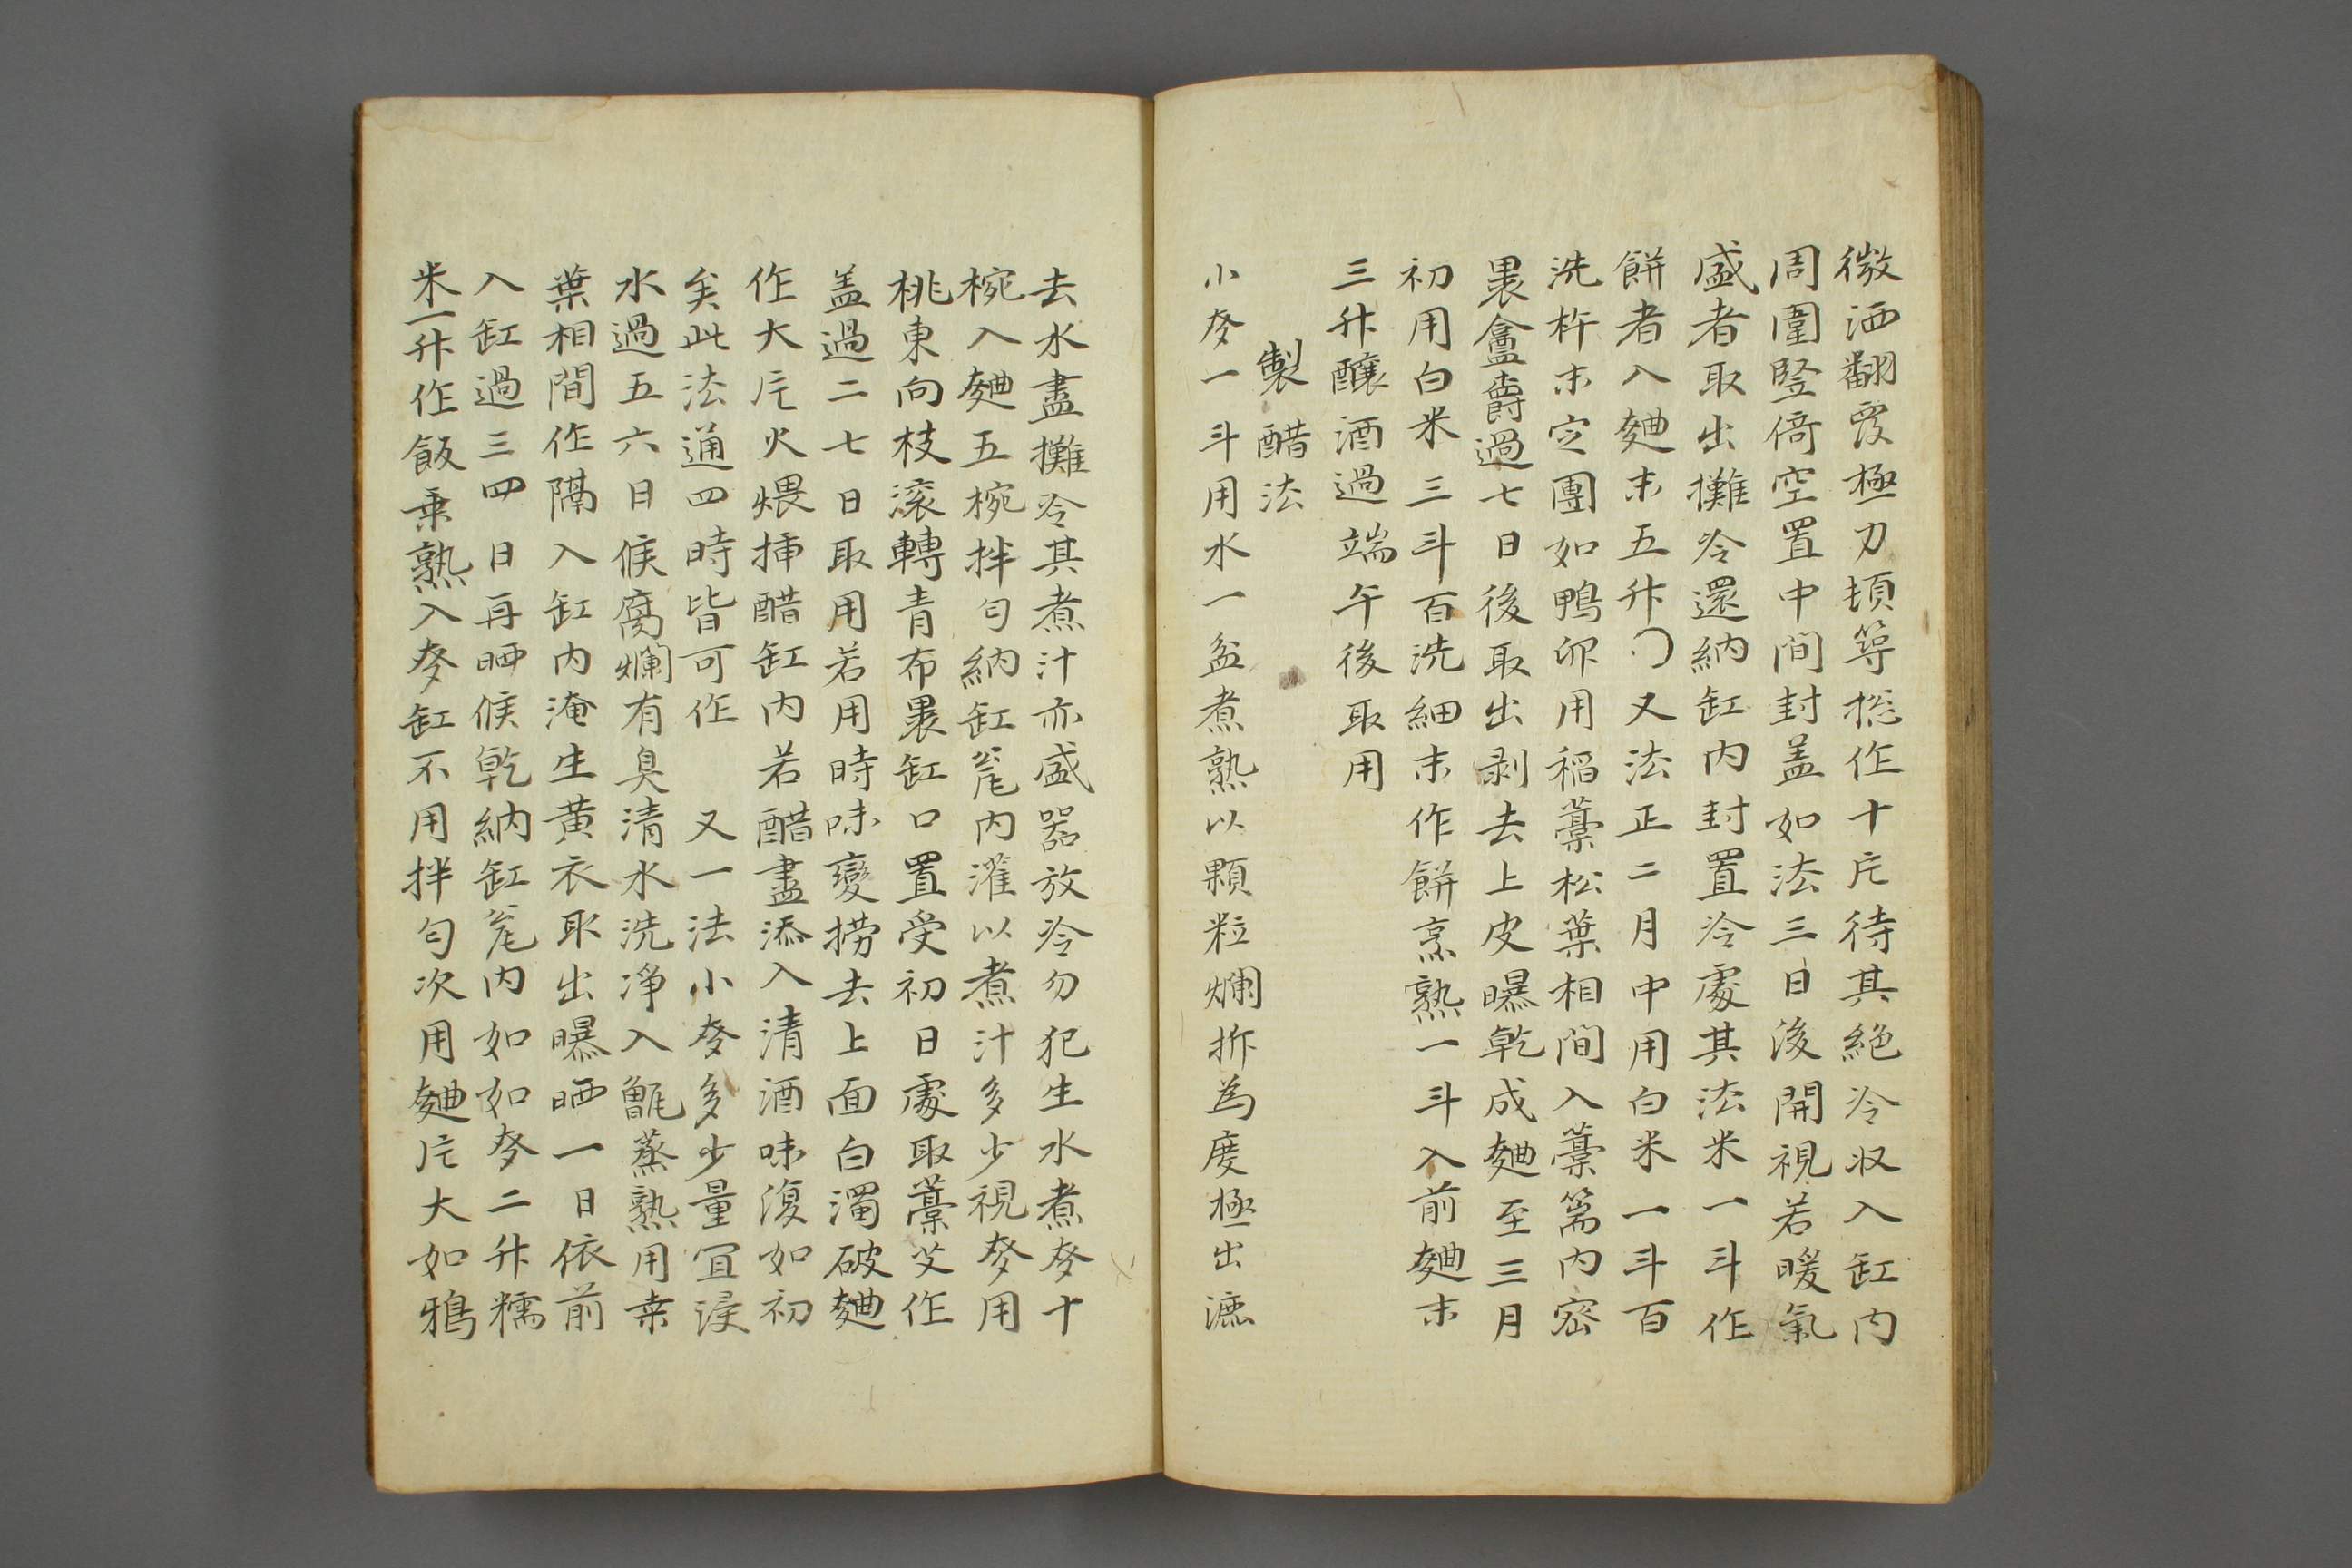 微洒翻覆極力頓等捴作十片待其絶冷収入缸内
周圍竪倚空置中間封盖如法三日後開視若暖氣
盛者取出攤冷還納缸内封置冷處其法米一斗作
餅者入麯末五升〇又法正二月中用白米一斗百
洗杵末空團如鴨卵用稲藁松葉相間入藁篅内密
裹盒欝過七日後取出剥去上皮曝乾成麯至三月
初用白米三斗百洗細末作餅烹熟一斗入前麯末
三升釀酒過端午後取用
製醋法
小麥一斗用水一盆煮熟以顆粒爛拆為度極出漉
去水盡攤冷其煮汁亦盛器放冷勿犯生水煮麥十
椀入麯五椀拌匀納缸瓮内灌以煮汁多少視麥用
桃東向枝滚轉青布裹缸口置受初日處取藁艾作
盖過二七日取用若用時味變撈去上面白濁破麯
作大片火煨揷醋缸内若醋盡添入清酒味復如初
矣此法通四時皆可作 又一法小麥多少量冝浸
水過五六日候腐爛有臭清水洗净入甑蒸熟用桒
葉相間作隔入缸内淹生黄衣取出曝晒一日依前
入缸過三四日再晒候乾納缸瓮内如如麥二升糯
米一升作飯乗熟入麥缸不用拌匀次用麯片大如鴉